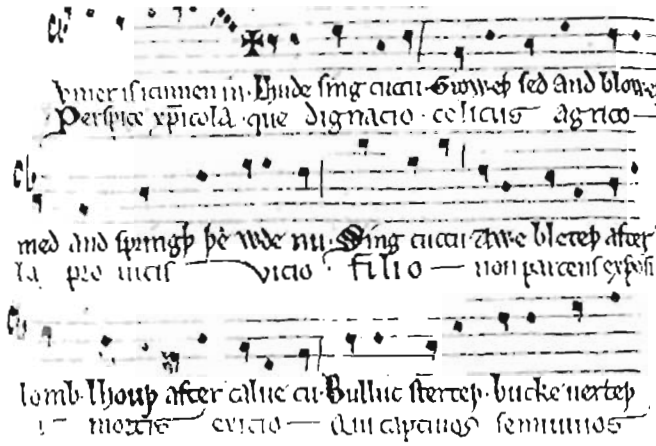 vmer is icumen in. Lhude sing cuccu. Groweþ sed and bloweþ
Perspice xp̅icola. que dignacio. celicus agrico
med and springþ þe wde nu. Sing cuccu. Awe bleteþ after
la pro uitis vicio. filio non parcens exposu
lomb. lhouþ after calue cu. Bulluc sterteþ. bucke uerteþ
mortis exicio Qui captiuos semiuiuos